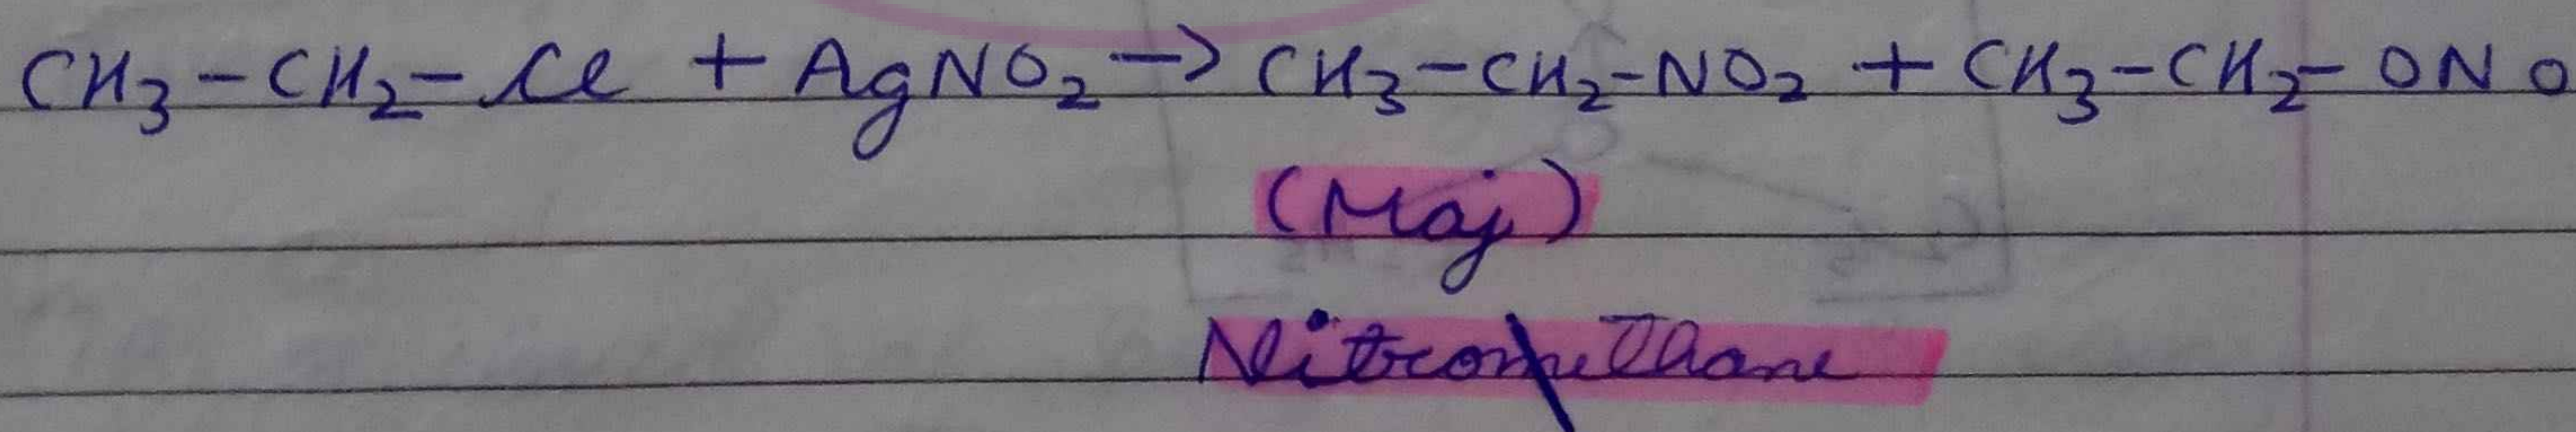 CH₃-CH₂-Cl + AgNO₂ → CH₃-CH₂-NO₂ + CH₃-CH₂-ONO
(Maj)
Nitroethane